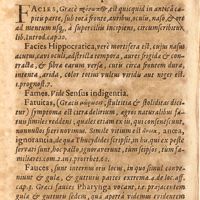 FACIES, Græcè πρόσωπον, est quicquid in anticâ ca-
pitis parte, sub toto fronte, auribus, oculis, naso, & ore
ad mentum usq;, à superciliis incipiens, circumscribitur.
lib. introd. cap. 10.
Facies Hippocratica, verè mortifera est, cujus nasus
acutus, cavi oculi, astricta tempora, aures frigidæ & con-
tractæ, & fibræ earum versæ, cutis circa frontem dura,
intenta, arida, color totius vultus viridis aut niger est.
1. prognost. 7.
Fames. Vide Sensus indigentia.
Fatuitas, Græcè stultitia & stoliditas dici-
tur; symptoma est citra delirium, ægros naturalibus fa-
tuis similes reddens, quales etiam ex iis, qui convalescunt,
nonnullos fieri novimus. Simile vitium est ἄνοια, anœa,
ignorantia, de qua Thucydides scripsit, in m. hi qui ex peste
servati sunt, hoc pallo ignoraverint, tum seipsos, tum fa-
miliares. com. 2. in 1. prorrhet. 62.
Fauces, sunt interior oris locus, in quo simul conve-
niunt & gula, & gutturis partes extremæ. de loc. aff.
cap. 5. Græci fauces Pharynga vocant, te. præjacentem
gulæ & gutturis sedem, quâ apertâ videmus existentem